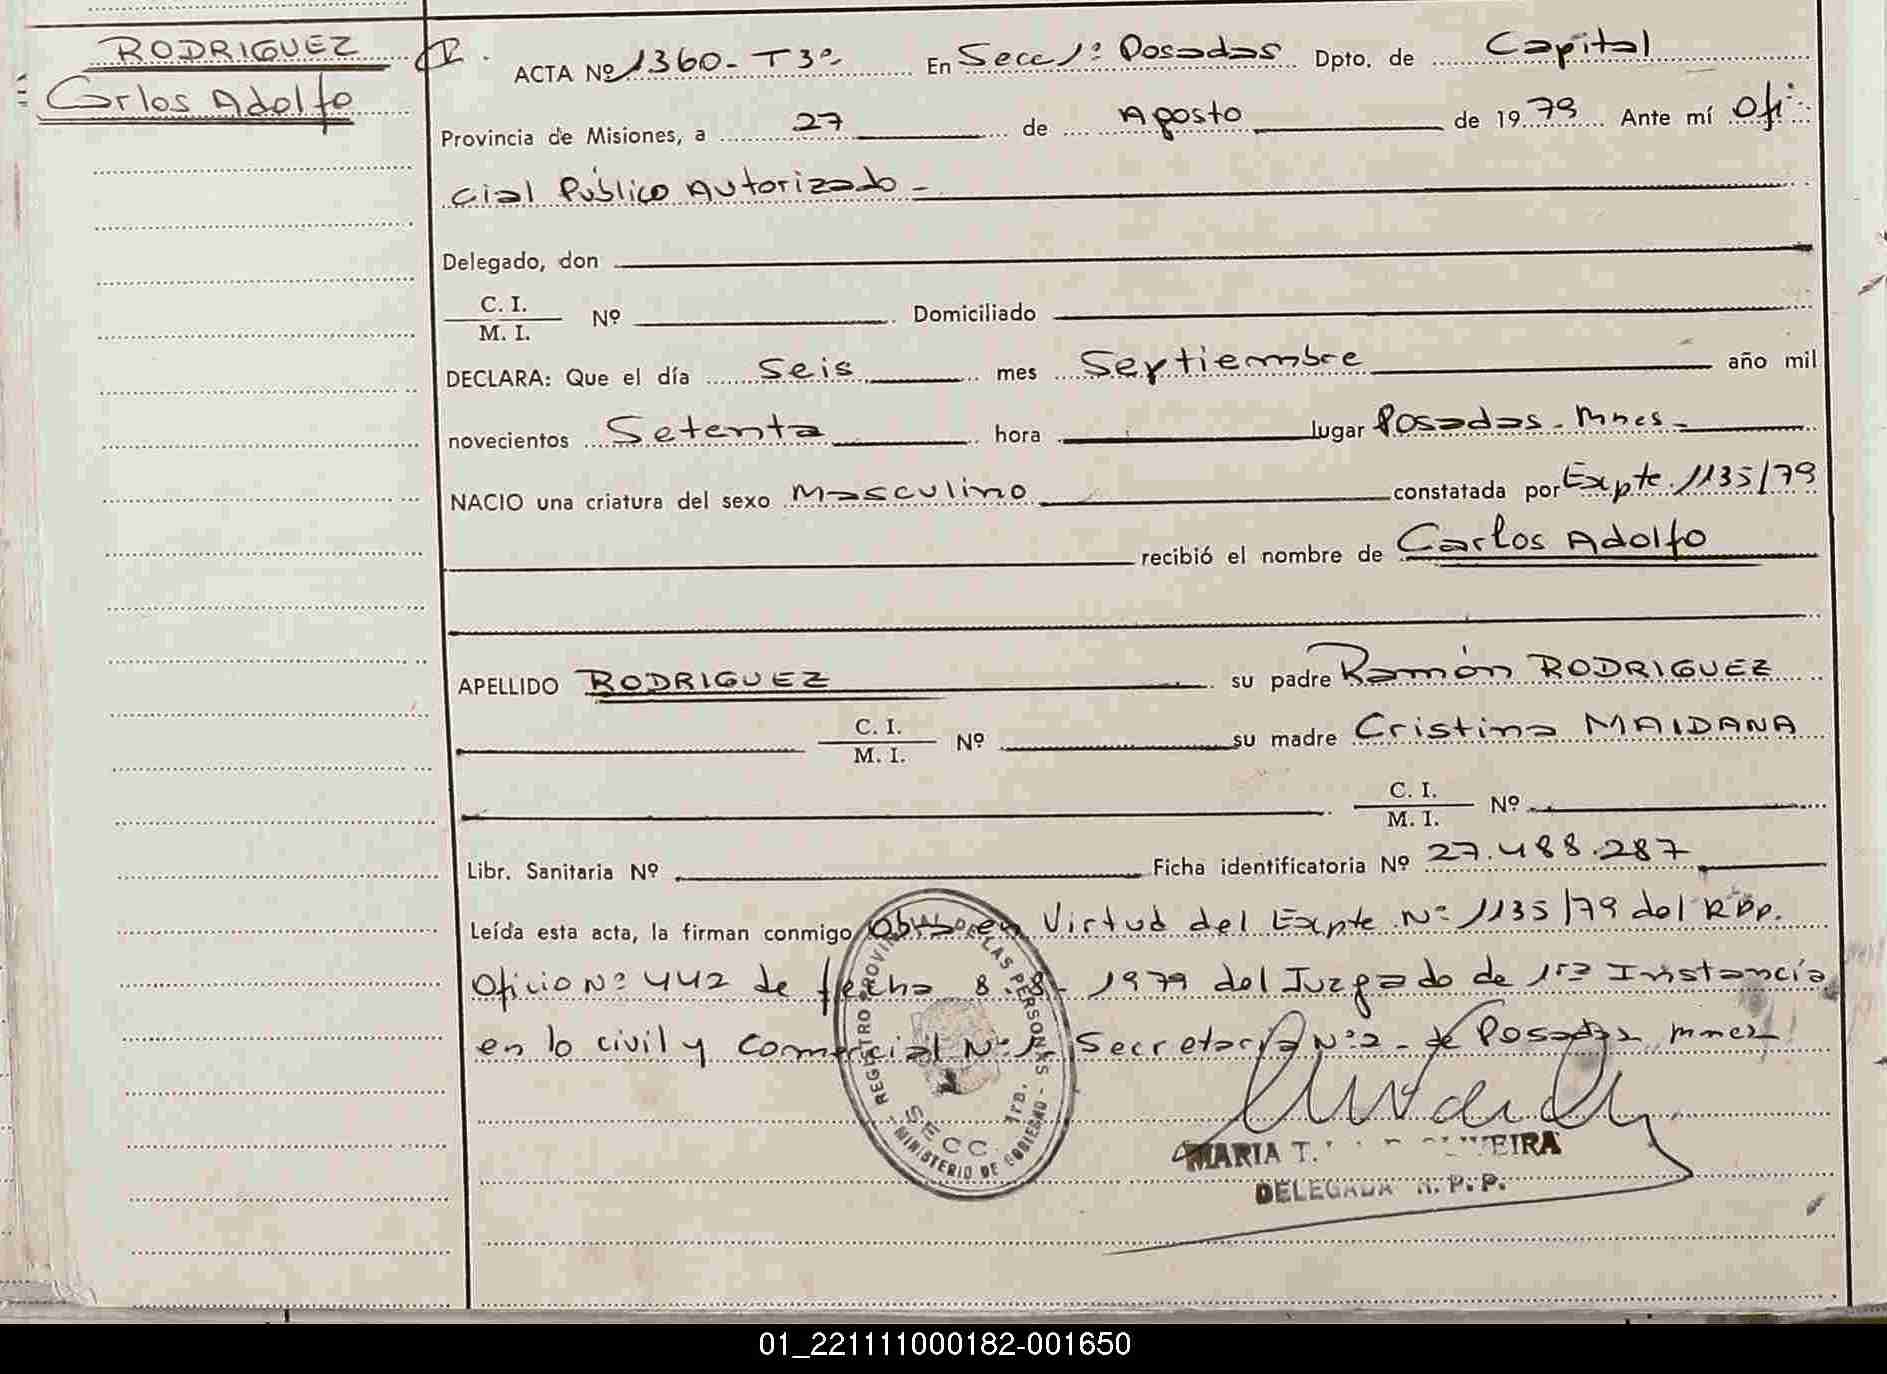 RODRIGUEZ
Carlos Adolfo
ACTA Nº 1360 - T3º En Secc 1ª Posadas Dpto. de Capital
Provincia de Misiones, a 27 de Agosto de 1979 Ante mí Ofi
cial Público Autorizado -
Delegado, don
C. I.
M. I. Nº Domiciliado
DECLARA: Que el día Seis mes Septiembre año mil
novecientos Setenta hora lugar Posadas - Mnes -
NACIO una criatura del sexo Masculino constatada por Expte. 1135/79
recibió el nombre de Carlos Adolfo
APELLIDO RODRIGUEZ su padre Ramón RODRIGUEZ
C. I.
M. I. Nº su madre Cristina MAIDANA
C. I.
M. I. Nº
Libr. Sanitaria Nº Ficha identificatoria Nº 27.488.287
Leída esta acta, la firman conmigo Obra en Virtud del Expte Nº 1135/79 del RPP.
Oficio Nº 442 de fecha 8-8-1979 del Juzgado de 1ra Instancia
en lo civil y Comercial Nº 1- Secretaría Nº 2 - de Posadas mnes
REGISTRO PROVINCIAL DE LAS PERSONAS
SECC. 1ra.
MINISTERIO DE GOBIERNO
MARIA T.
DELEGADA R. P. P.
01_221111000182-001650